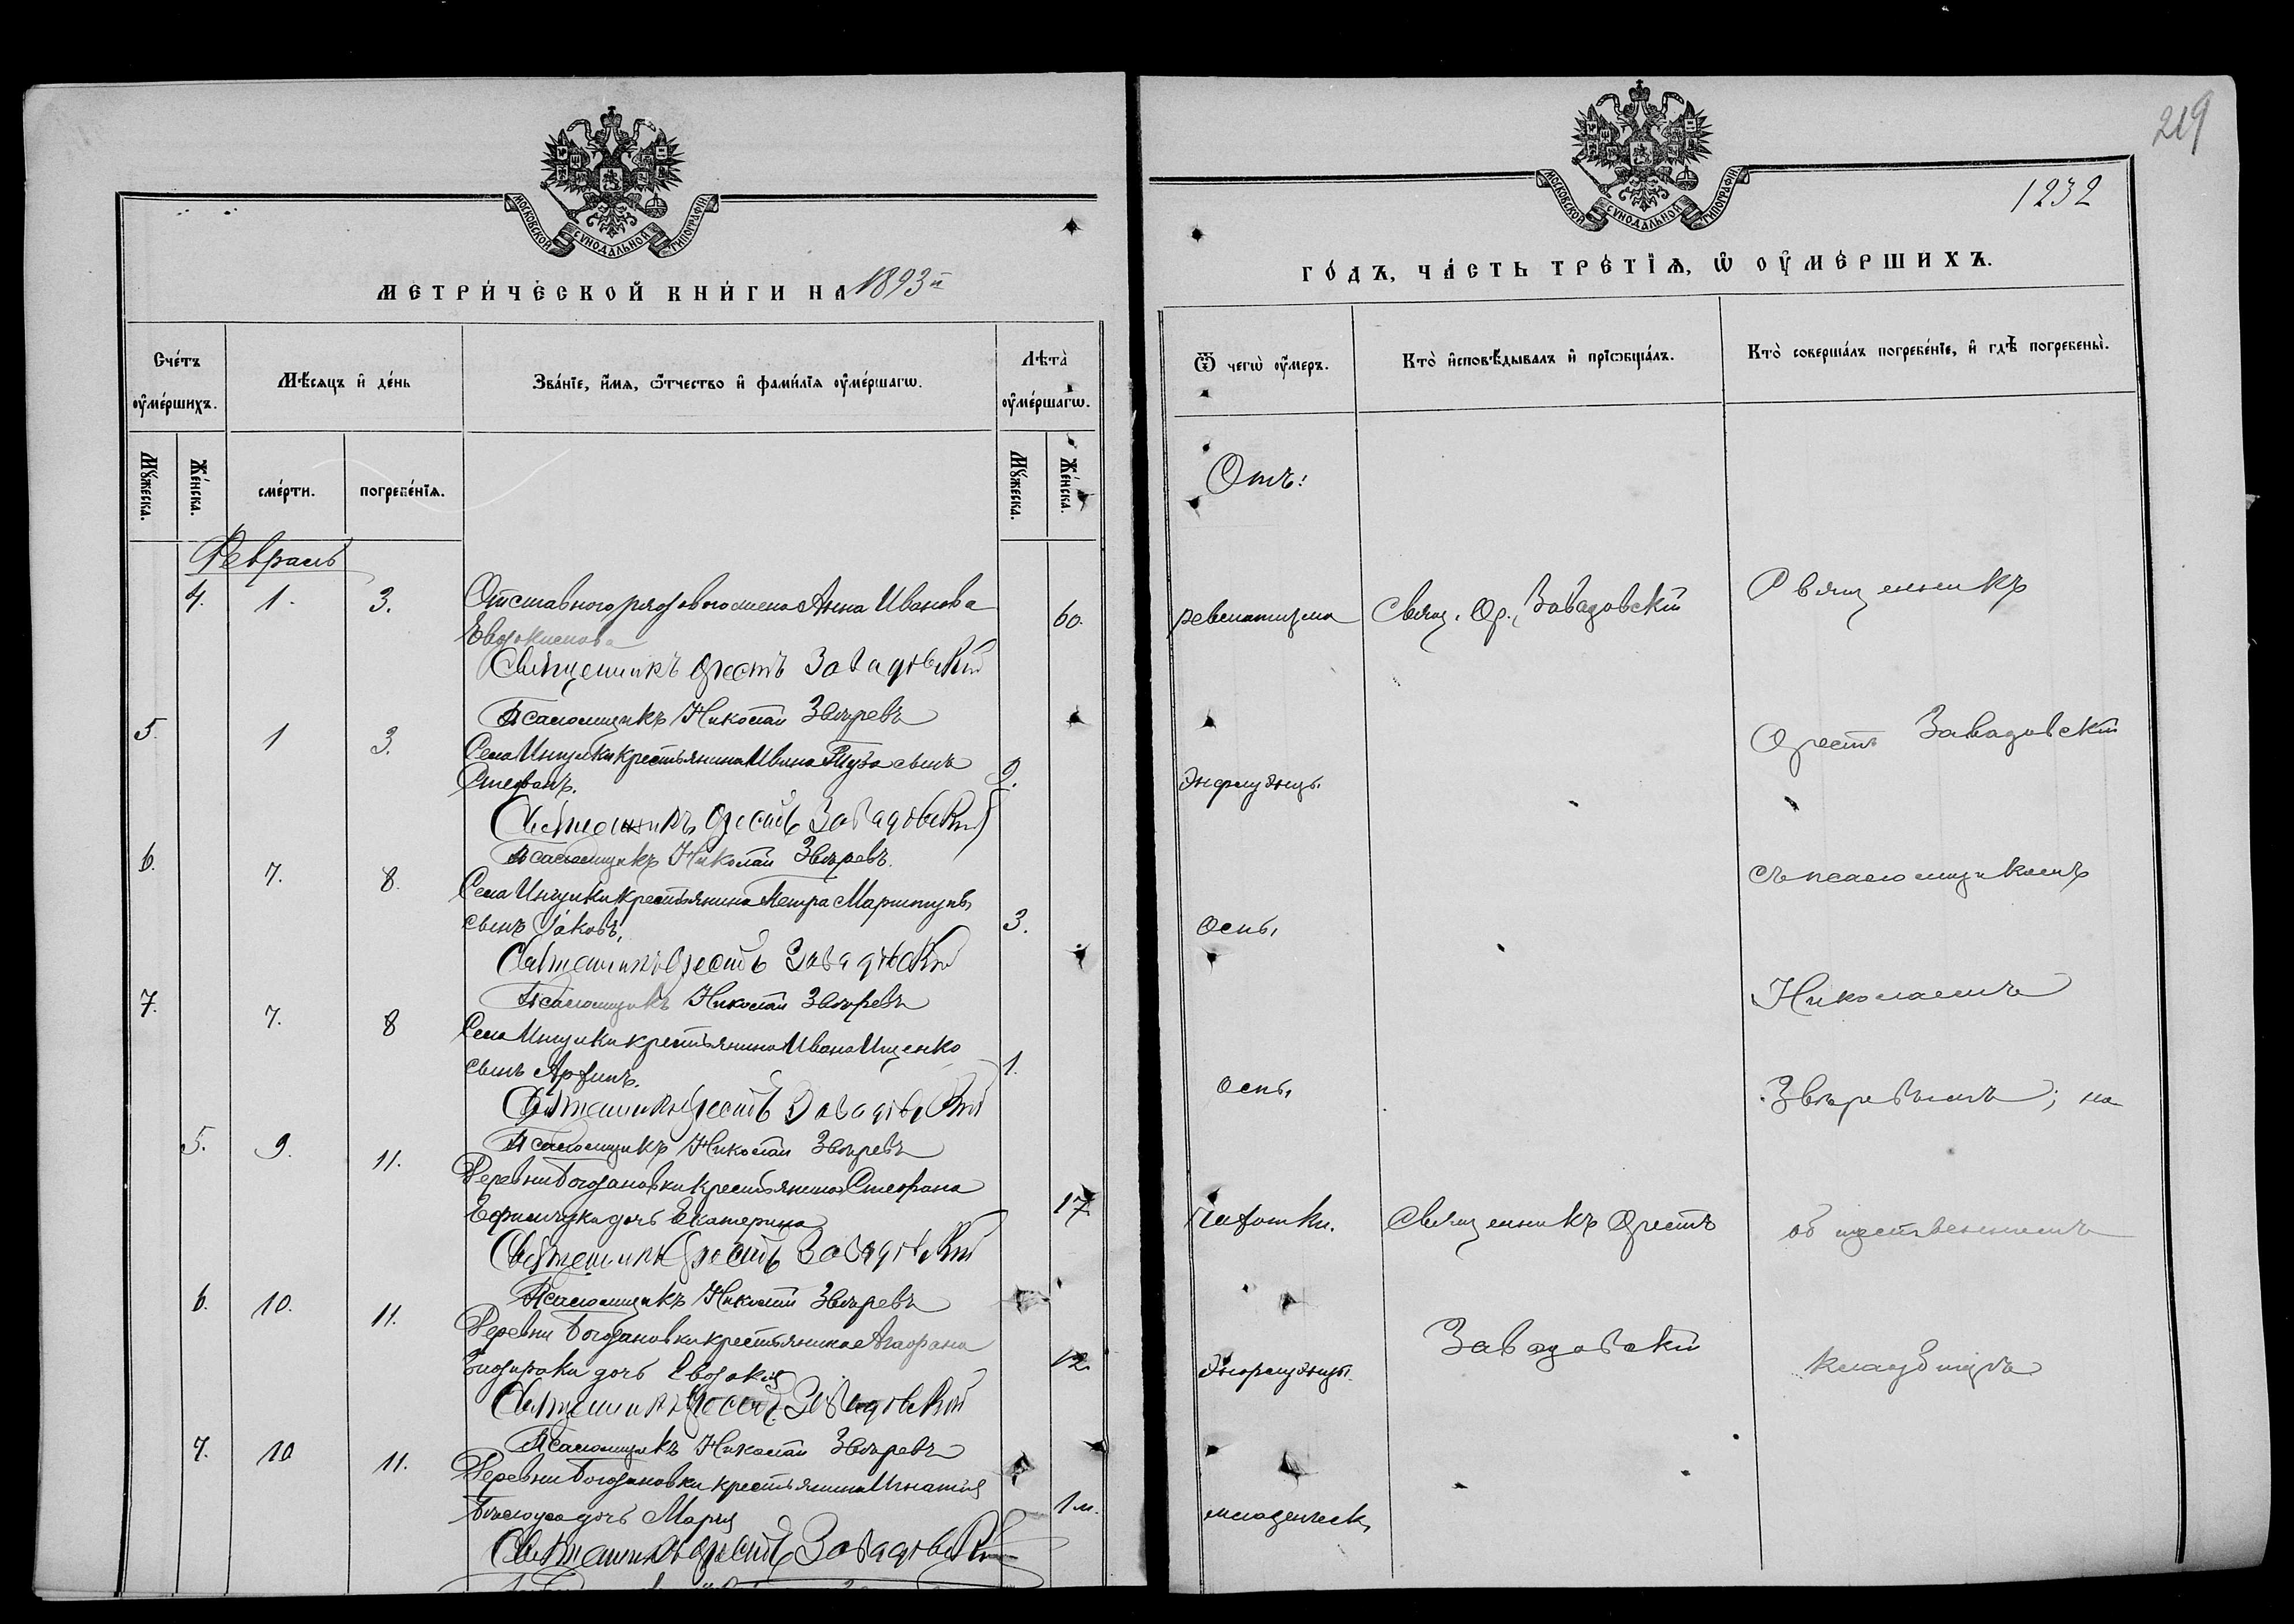 МОСКОВСКОЙ СѴНОДАЛЬНОЙ ТИПОГРАФІИ
МЕТРИ́ЧЕСКОЙ КНИ́ГИ НА 1893й
Сче́тъ ᲂу҆ме́ршихъ.
Мѣ́сѧцъ и҆ де́нь
Зва́нїе, и҆́мѧ, ѻ҆́тчество и҆ фами́лїѧ ᲂу҆ме́ршагѡ.
Лѣ́та ᲂу҆ме́ршагѡ.
Мꙋ́жеска.
Же́нска.
сме́рти.
погребе́нїѧ.
Мꙋ́жеска.
Же́нска.
Февраль
4. 1. 3. Отставного рядового жена Анна Иванова 60.
Евдокимова
Священникъ Орестъ Завадовскій
Псаломщикъ Николай Звѣревъ
5. 1 3. Села Ингулки крестьянина Ивана сынъ 2.
Стефанъ.
Священникъ Орестъ Завадовскій
Псаломщикъ Николай Звѣревъ.
6. 7. 8. Села Ингулки крестьянина Петра
сынъ Іаковъ, 3.
Священникъ Орестъ Завадовскій
Псаломщикъ Николай Звѣревъ
7. 7. 8 Села Ингулки крестьянина Ивана Ищенко
сынъ 1.
Священникъ Орестъ Завадовскій
Псаломщикъ Николай Звѣревъ
5. 9. 11. Деревни Богдановки крестьянина Стефана
Ефимчука дочь Екатерина 17.
Священникъ Орестъ Завадовскій
Псаломщикъ Николай Звѣревъ
6. 10. 11. Деревни Богдановки крестьянина Агафона
дочь Евдокія 12.
Священникъ Орестъ Завадовскій
Псаломщикъ Николай Звѣревъ
7. 10 11. Деревни Богдановки крестьянина Игнатія
дочь Марія 1 м.
Священникъ Орестъ Завадовскій
219
1232
МОСКОВСКОЙ СѴНОДАЛЬНОЙ ТИПОГРАФІИ
ГО́ДЪ, ЧА́СТЬ ТРЕ́ТЇѦ, Ѡ҆ ОУ҆МЕ́РШИХЪ.
Ѿ чегѡ̀ ᲂу҆́меръ.
Кто̀ и҆сповѣ́дывалъ и҆ прїѡбща́лъ.
Кто̀ соверша́лъ погребе́нїе, и҆ гдѣ̀ погребены̀.
Отъ:
ревматизма Свящ. Ор. Завадовскій Священникъ
Орестъ Завадовскій
Инфлуэнцы.
съ псаломщикомъ
оспы,
Николаемъ
оспы, Звѣревымъ; на
чахотки. Священникъ Орестъ общественномъ
Завадовскій кладбищѣ
Инфлуэнцы.
младенческ.